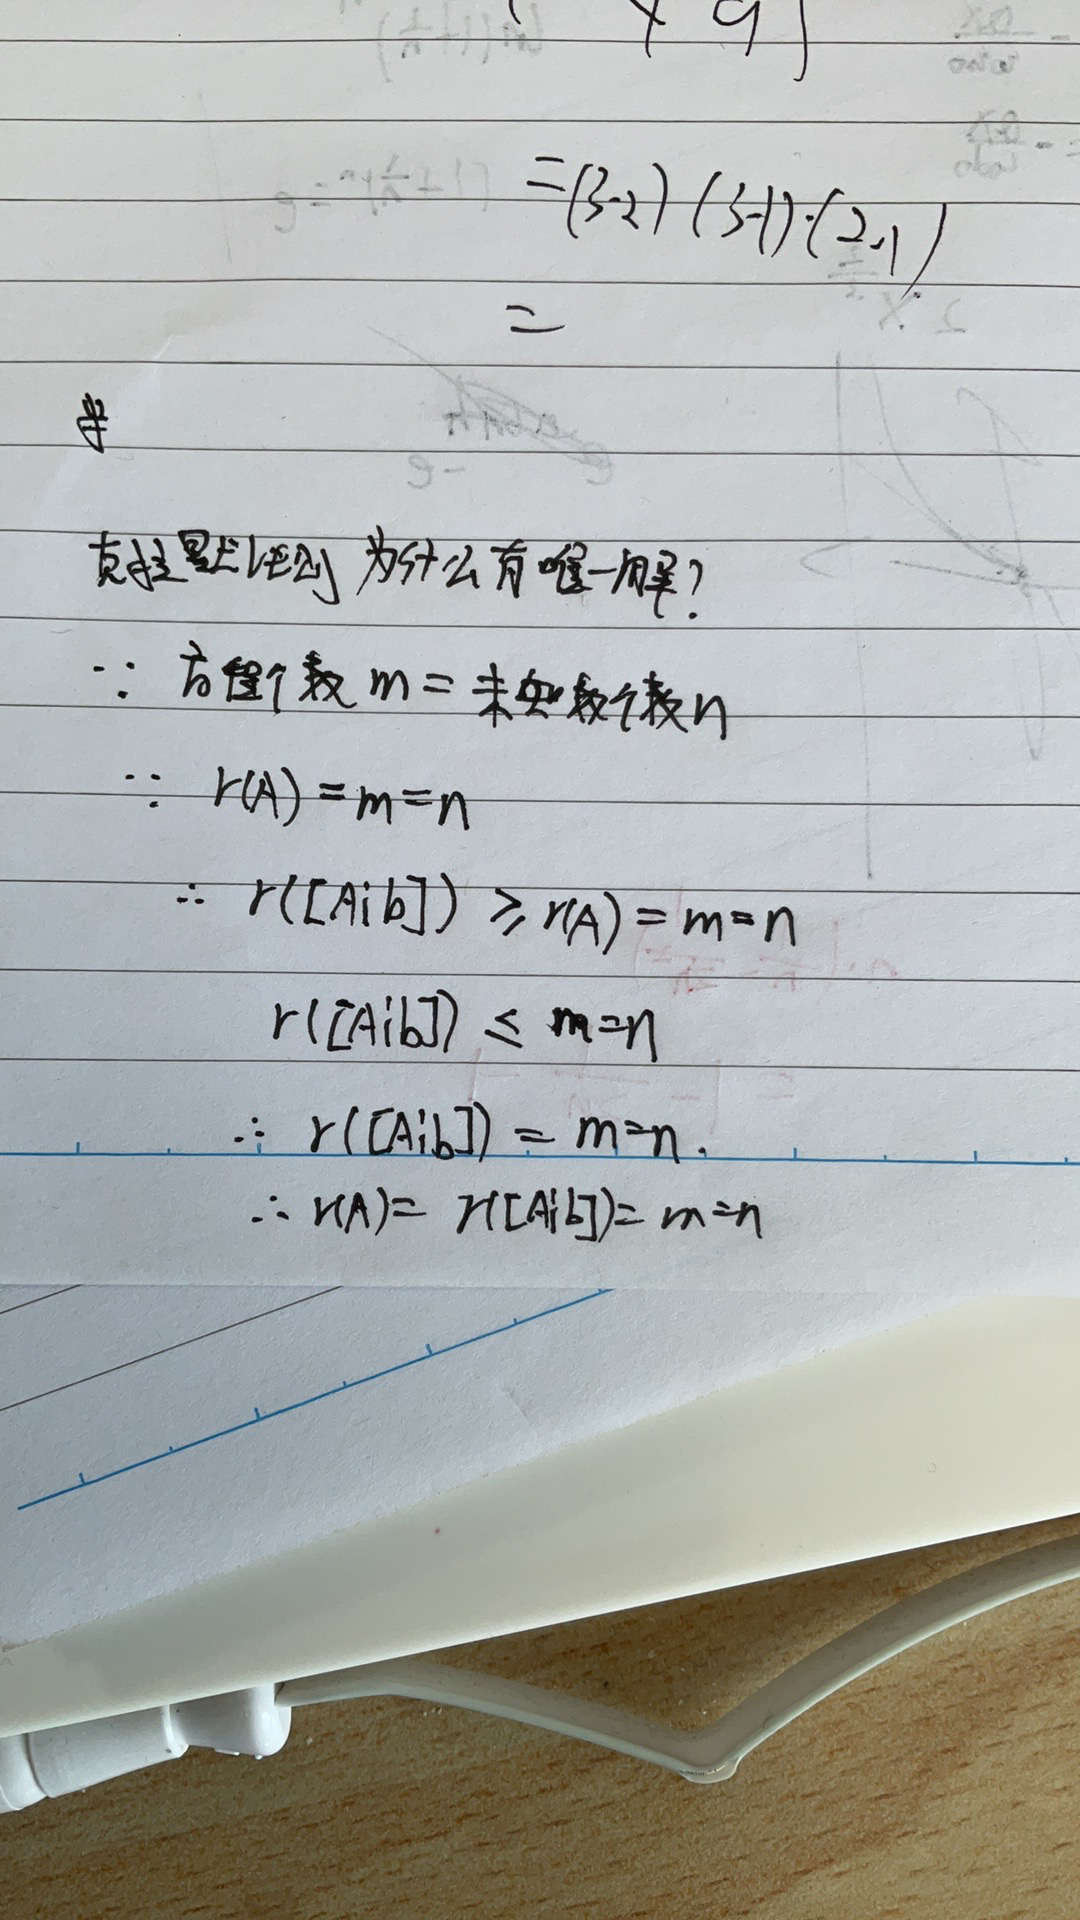 =(3-2)(3-1)·(2-1)
=
克拉默法则为什么有唯一解?
∵ 方程个数 m = 未知数个数 n
∵ r(A) = m = n
∴ r([A¦b]) ≥ r(A) = m = n
r([A¦b]) ≤ m = n
∴ r([A¦b]) = m = n.
∴ r(A) = r([A¦b]) = m = n